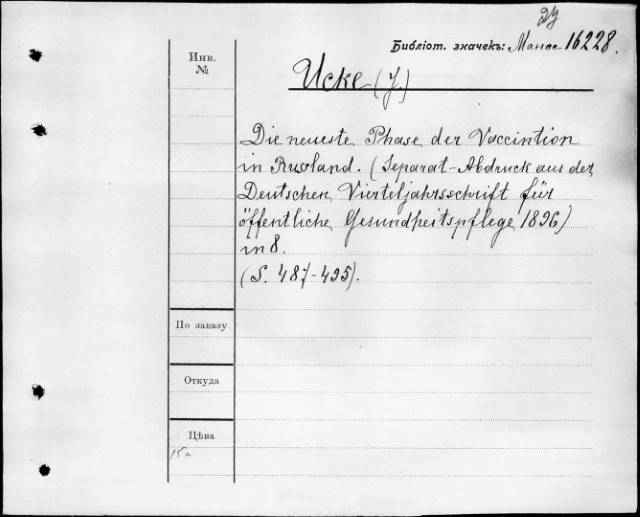 24
Библіот. значекъ: Манас 16228.
Инв. №
Ucke (J.)
Die neueste Phase der Vaccintion
in Russland. (Separat-Abdruck aus der
Deutschen Vierteljahrsschrift für
öffentliche Gesundheitspflege 1896)
in 8.
(S. 487-495).
По заказу
Откуда
Цѣна